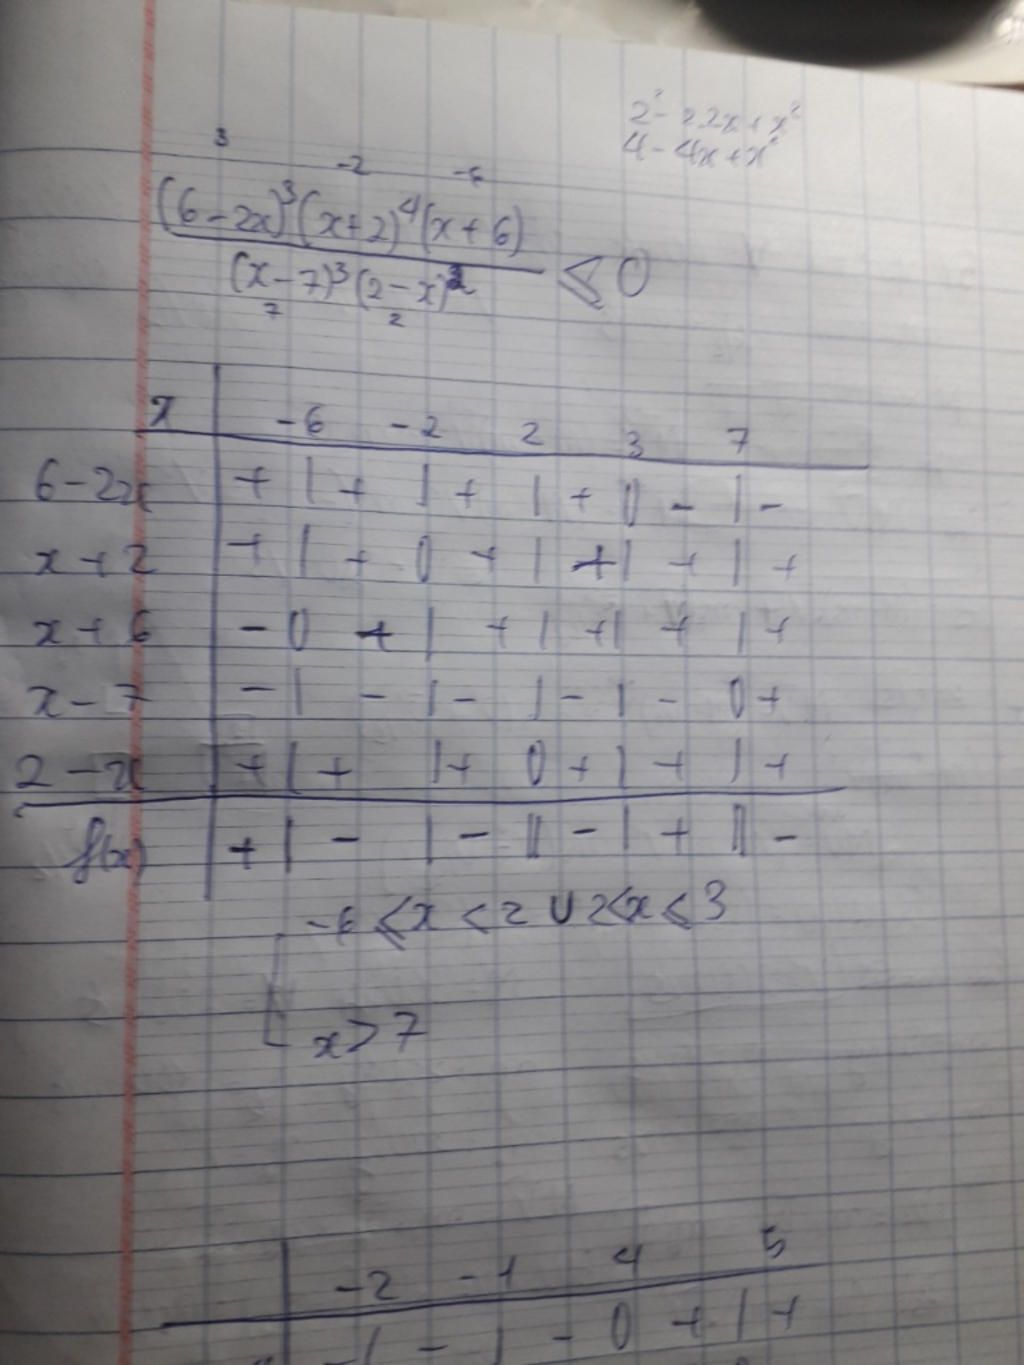 2² - 2.2x + x²
4 - 4x + x²
3 -2 -6
(6-2x)³(x+2)⁴(x+6)
(x-7)³(2-x)² ⩽ 0
7 2
x -6 -2 2 3 7
6-2x + | + | + | + 0 - | -
x+2 + | + 0 + | + | + | +
x+6 - 0 + | + | + | + | +
x-7 - | - | - | - | - 0 +
2-x + | + | + 0 + | + | +
f(x) + | - | - || - | + || -
-6 ⩽ x < 2 ∪ 2 < x ⩽ 3
x > 7
-2 -1 4 5
- | - | - 0 + | +